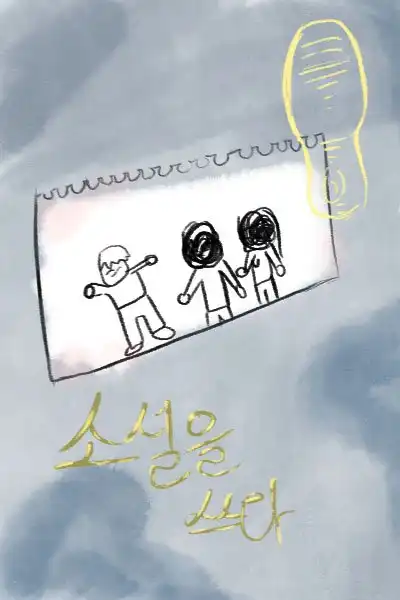 소설을
쓰다